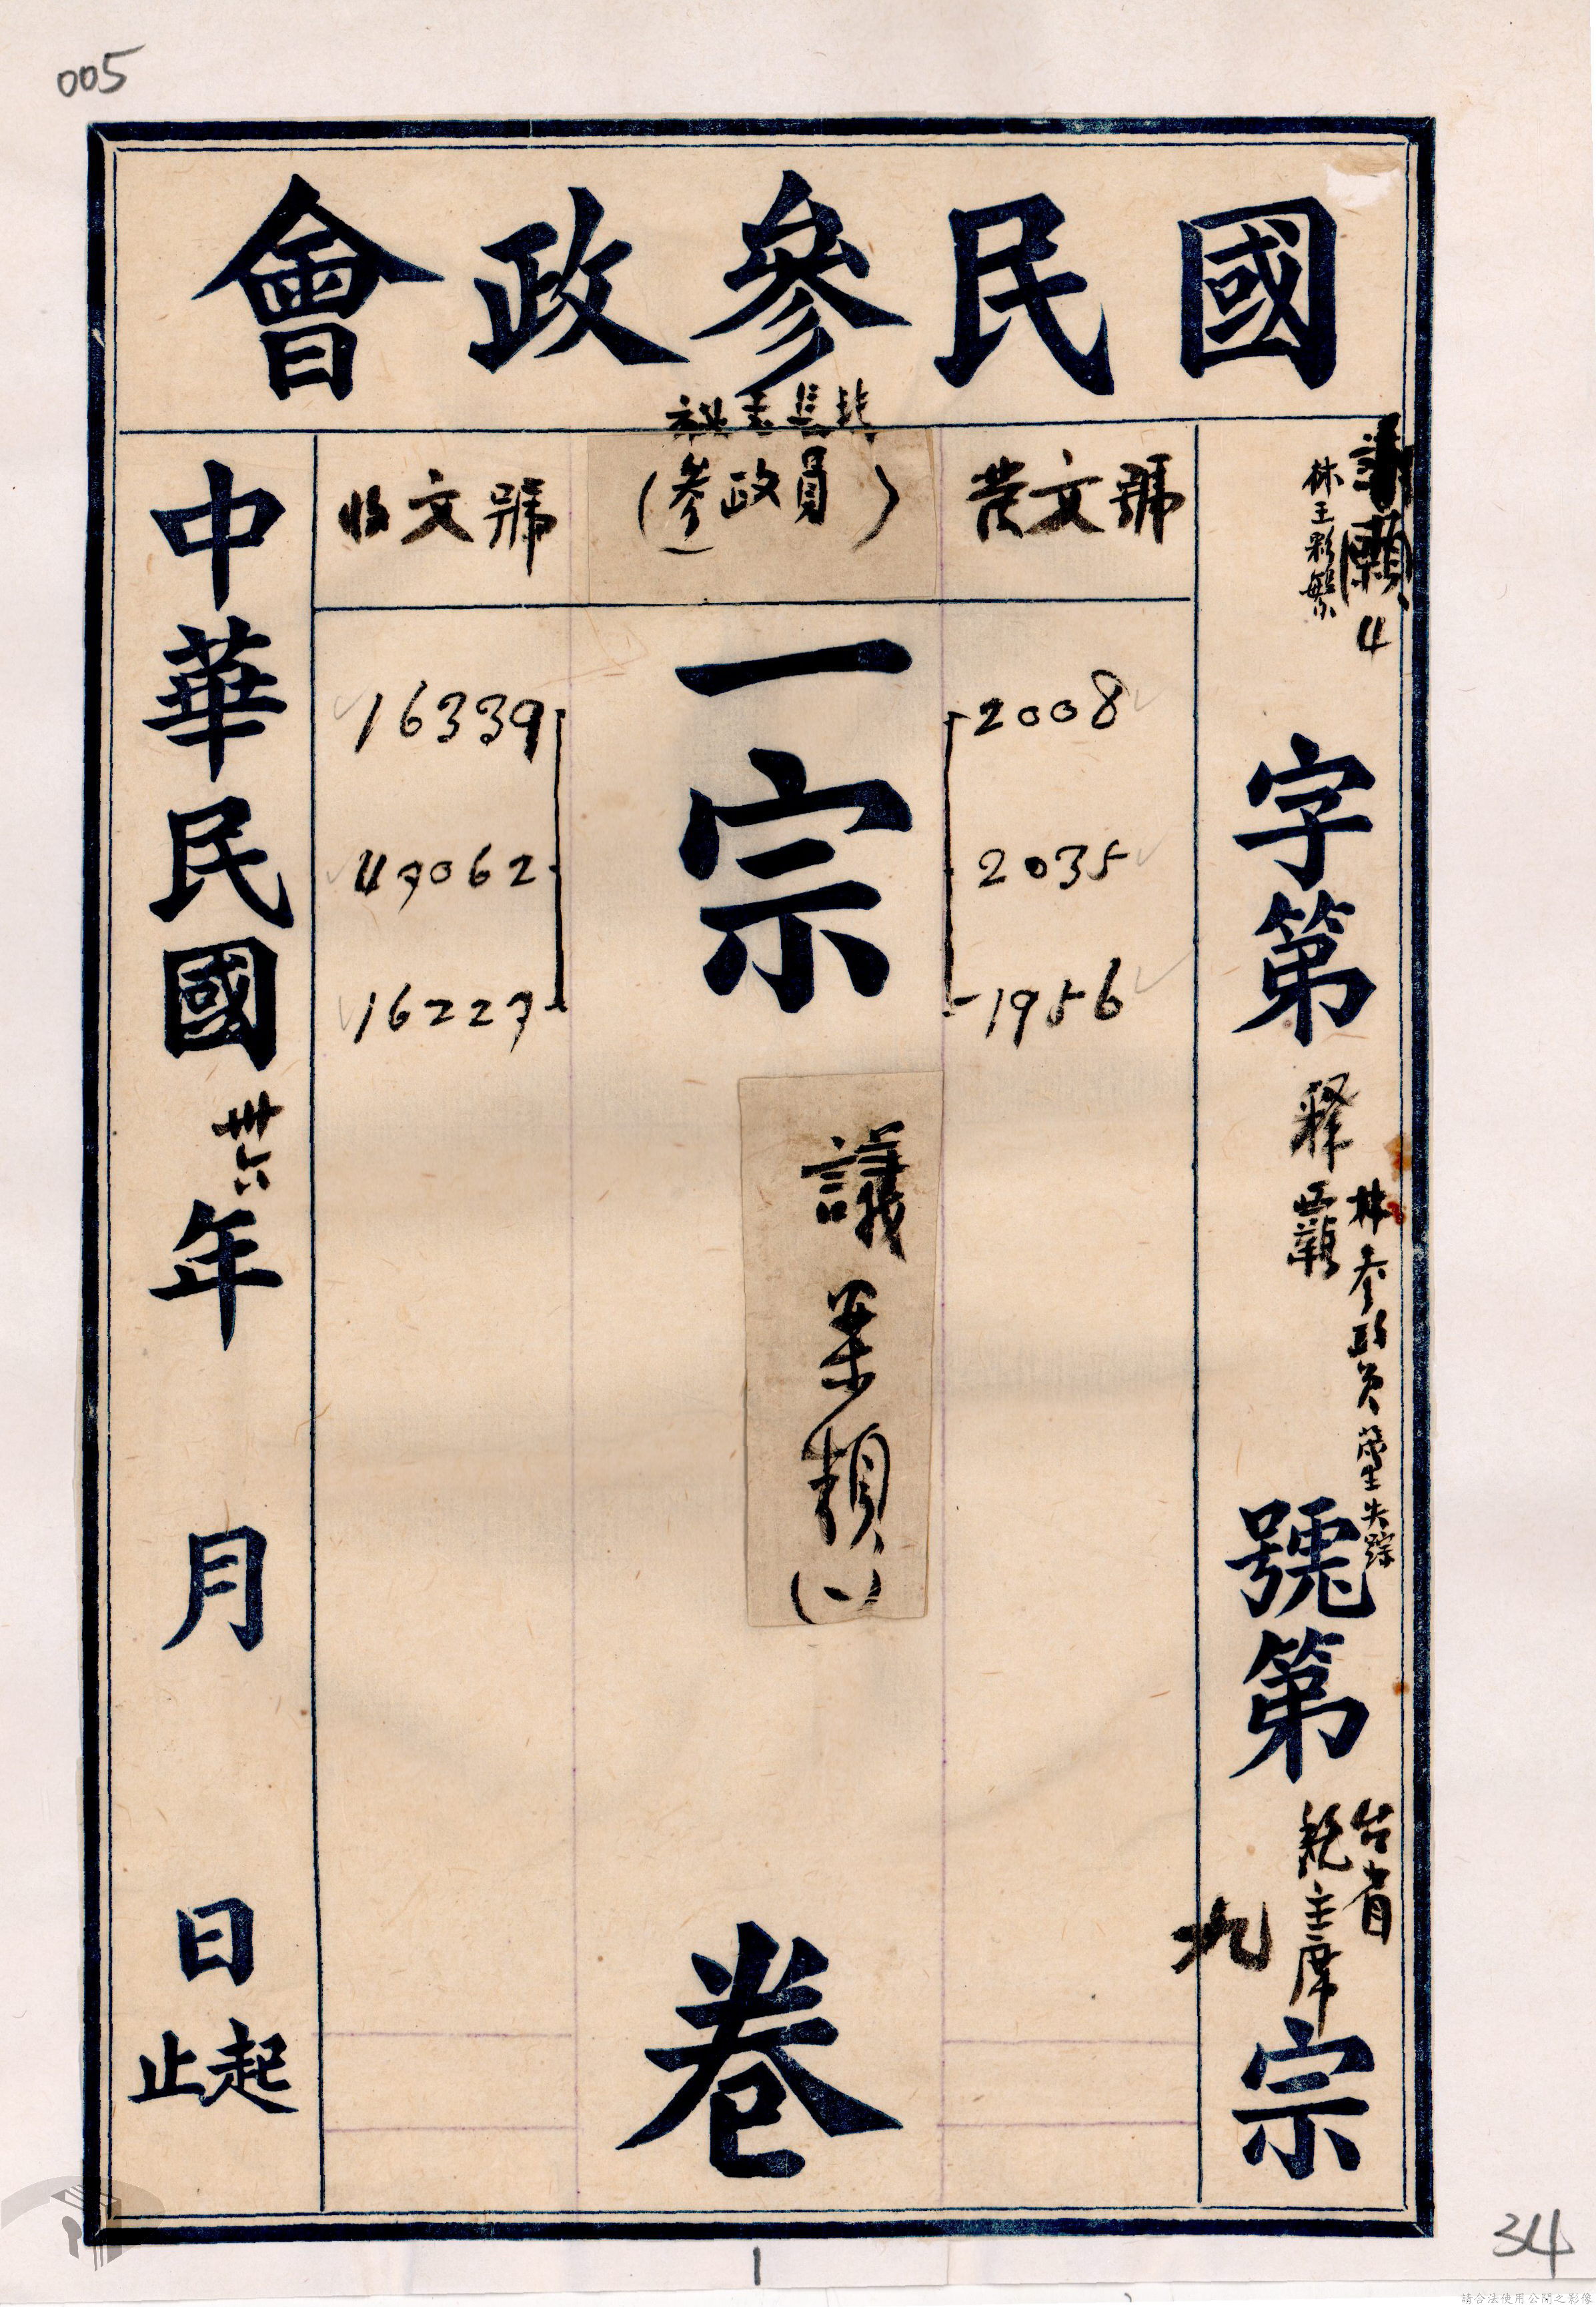 005
國民參政會
林王彩繁
4
字第 號第 宗
釋
林參政員 失踪
台省
主席
發文號
2008
2035
1956
(參政員)
一宗 卷
議案類(一)
收文號
16339
47062
16227
中華民國卅六年 月 日起止
1
34
請合法使用公開之影像